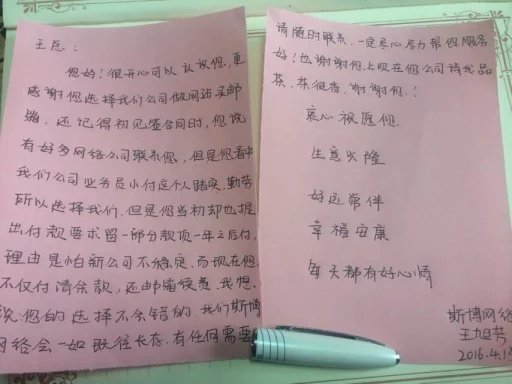 王总:
您好!很开心可以认识您,更
感谢您选择我们公司做网站买邮
箱,还记得初见签合同时,您说
有好多网络公司联系您,但是您看中
我们公司业务员小付这个人踏实,勤劳
所以选择我们,但是您当初却也提
出付款要求留一部分款项一年之后付,
理由是怕新公司不稳定.而现在您
不仅付清余款,还邮箱续费,我想
说您的选择不会错的.我们斯博
网络会一如既往长存.有任何需要
请随时联系,一定衷心尽力帮您服务
好!也谢谢您上次在您公司请我品
茶,茶很香,谢谢您.!
衷心祝愿您.
生意兴隆
好运常伴
幸福安康
每天都有好心情
斯博网络
2016.4.13